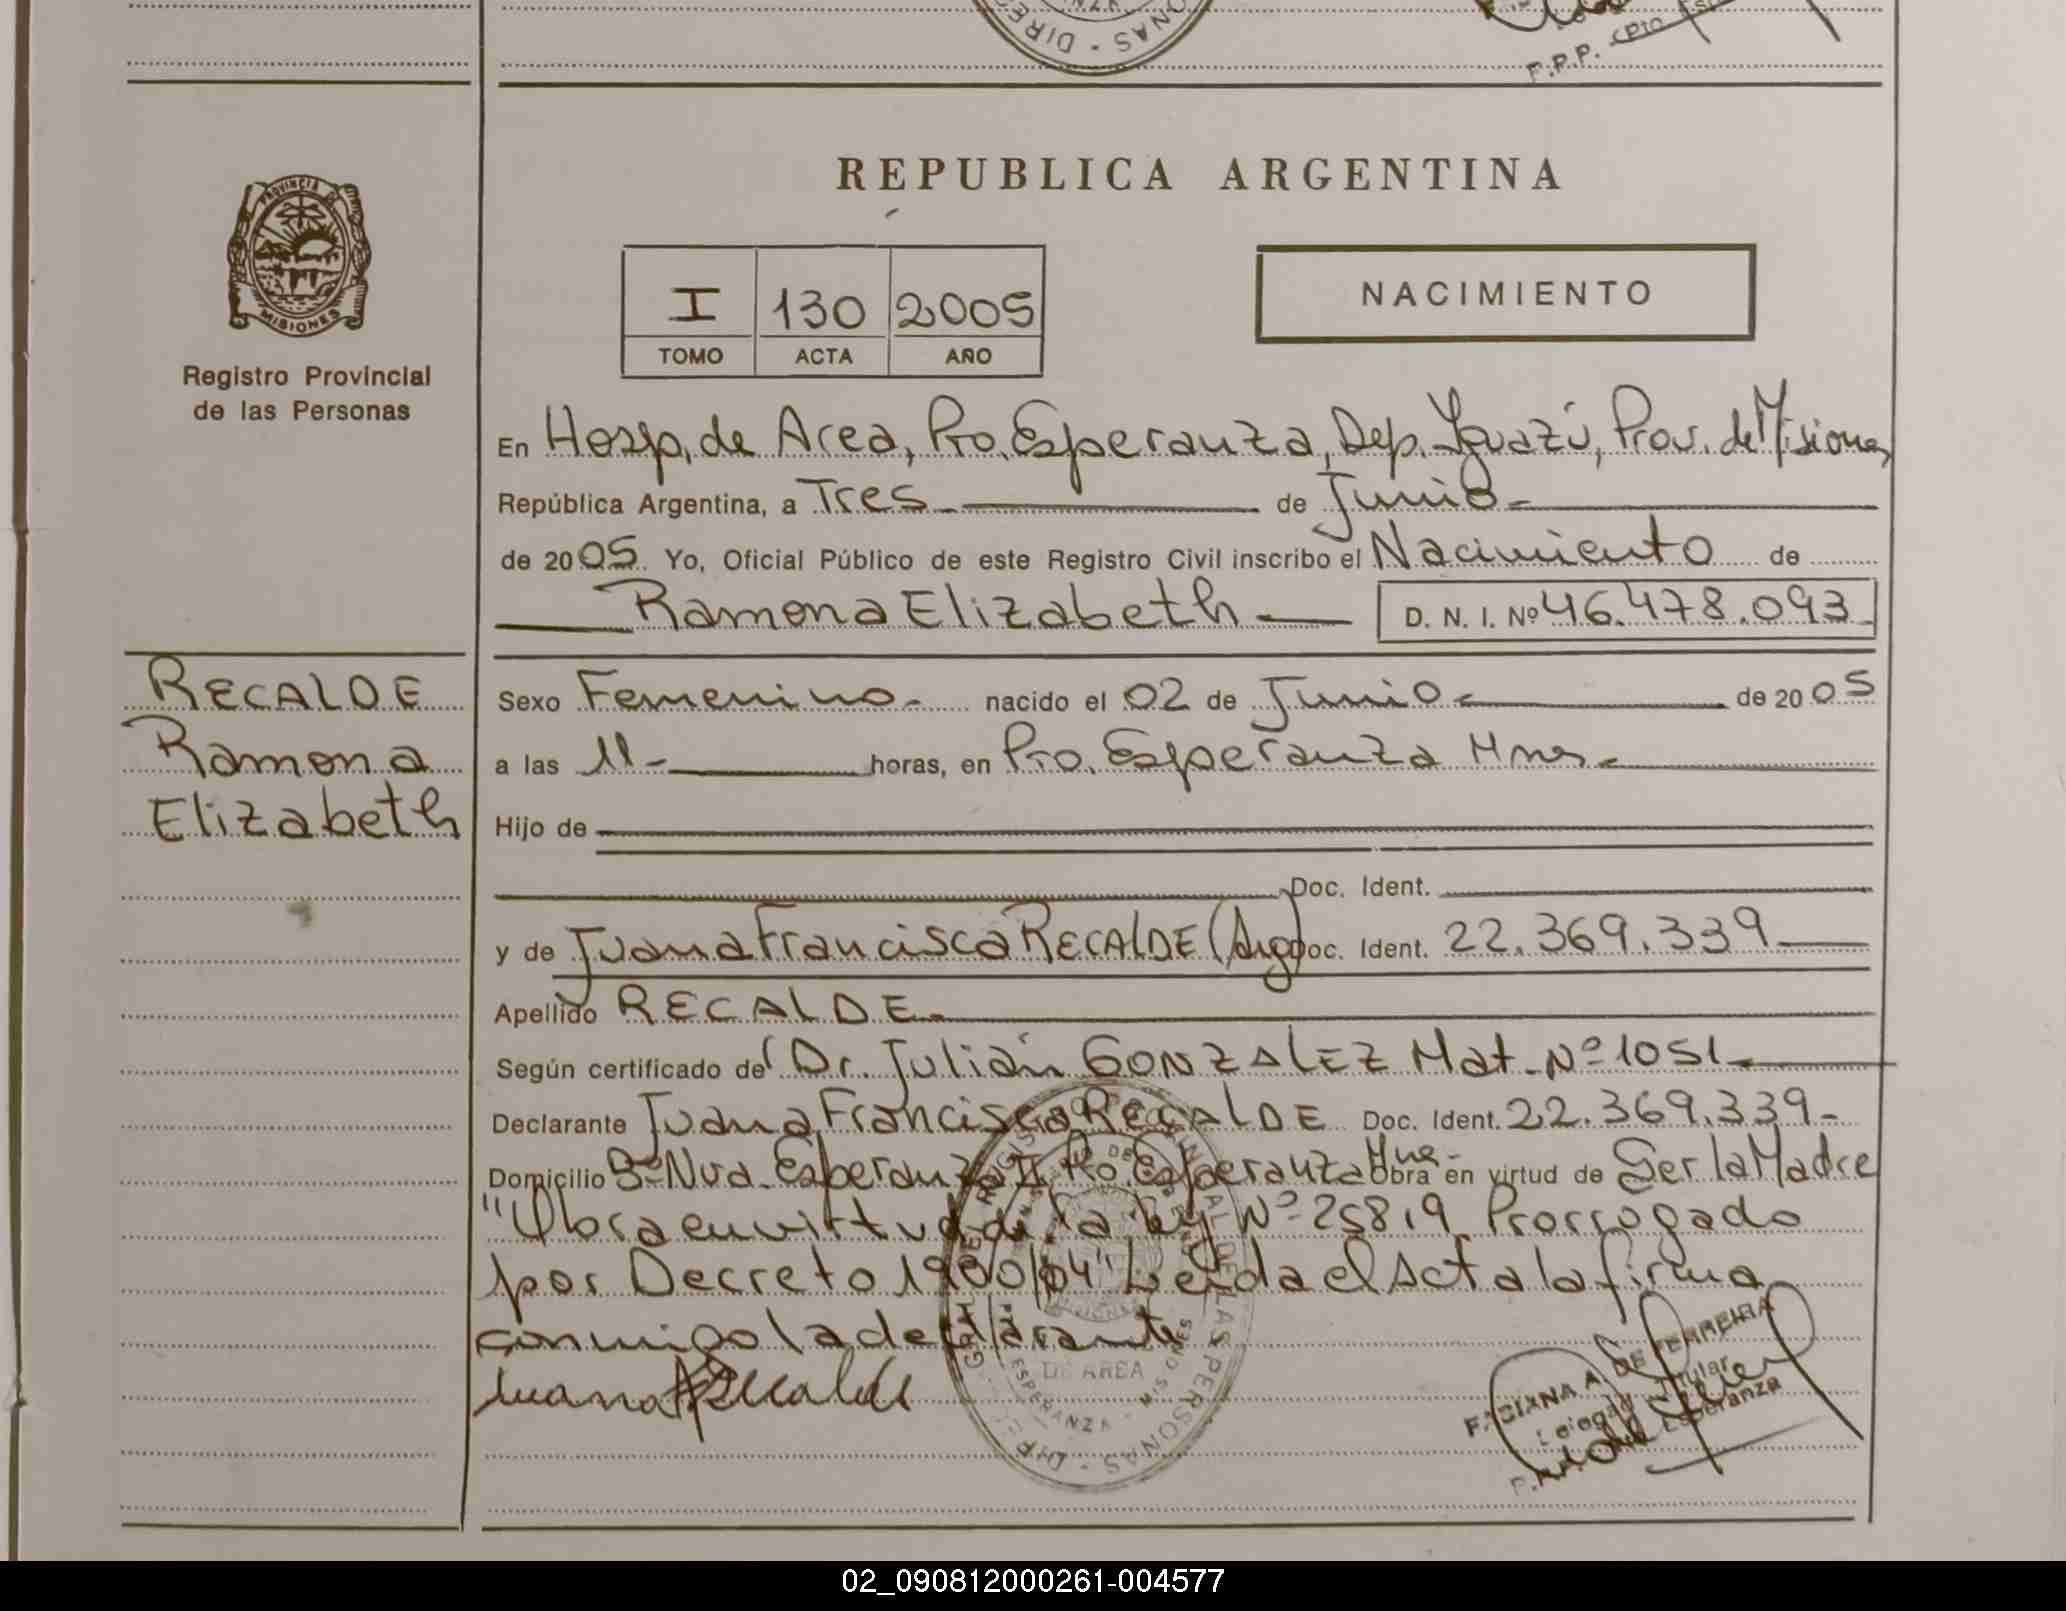 ONAS - DIREC
F.P.P. Pto. Esp
PROVINCIA DE
MISIONES
Registro Provincial
de las Personas
REPUBLICA ARGENTINA
I 130 2005
TOMO ACTA AÑO
NACIMIENTO
En Hosp. de Area, Pto. Esperanza, Dep. Iguazú, Prov. de Misiones,
República Argentina, a Tres de Junio
de 2005. Yo, Oficial Público de este Registro Civil inscribo el Nacimiento de
Ramona Elizabeth D. N. I. Nº 46.478.093
RECALDE
Ramona
Elizabeth
Sexo Femenino nacido el 02 de Junio de 2005
a las 11 horas, en Pto. Esperanza Mnes.
Hijo de
Doc. Ident.
y de Juana Francisca RECALDE (Arg) Doc. Ident. 22.369.339
Apellido RECALDE
Según certificado de Dr. Julián GONZALEZ Mat. Nº 1051
Declarante Juana Francisca RECALDE Doc. Ident. 22.369.339
Domicilio Bº Nva. Esperanza II Pto. Esperanza Mnes Obra en virtud de Ser la Madre
"Obra en virtud de la Ley Nº 25819 Prorrogado
por Decreto 1900/04" Leída el Acta la firma
conmigo la declarante
Juana F Recalde
DE AREA
ESPERANZA - MISIONES
A. DE FERREIRA
Titular
Esperanza
02_090812000261-004577